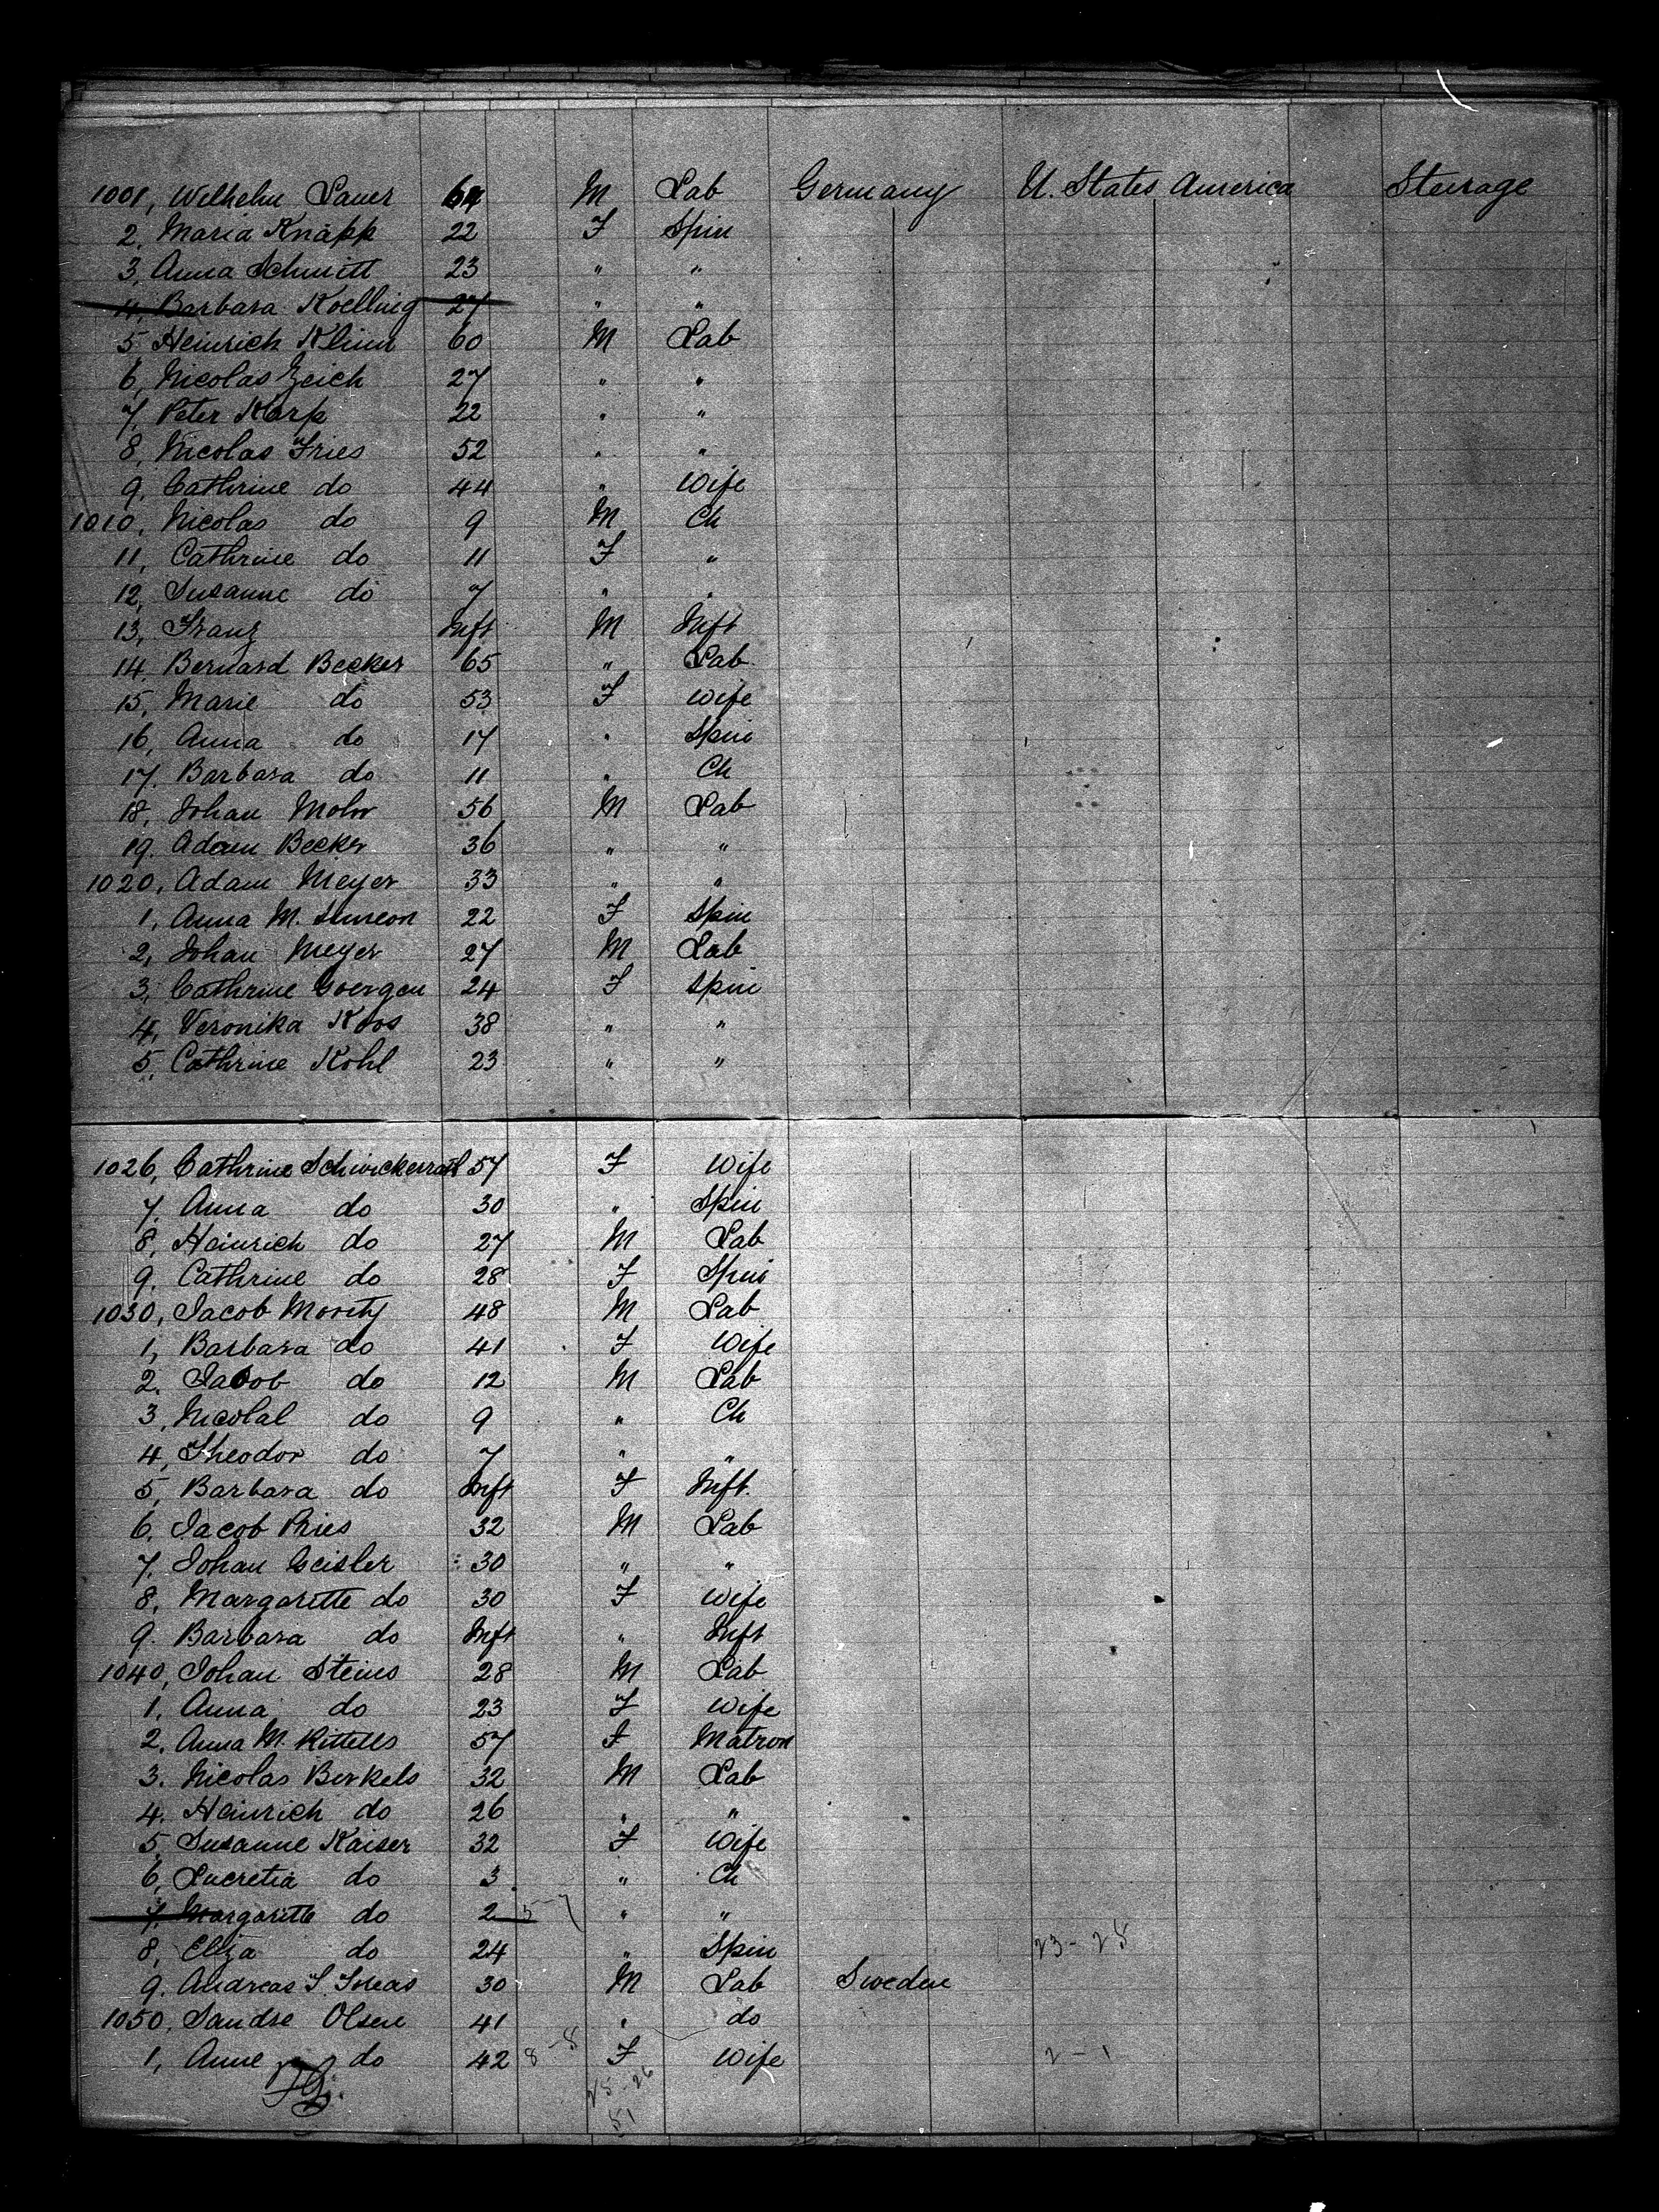 1001, Wilhelm Sauer 64 M Lab Germany U. States America Steerage
2, Maria Knapp 22 F Spin
3, Anna Schmitt 23 " "
4, Barbara Koelling 27 " "
5 Heinrich Klinn 60 M Lab
6, Nicolas Zeich 27 " "
7, Peter Karp 22 " "
8, Nicolas Fries 52 " "
9, Cathrine do 44 " Wife
1010, Nicolas do 9 M Ch
11, Cathrine do 11 F "
12, Susanne do 7 " "
13, Franz Inft M Inft
14, Bernard Becker 65 " Lab
15, Marie do 53 F wife
16, Anna do 17 " Spin
17, Barbara do 11 " Ch
18, Johan Mohr 56 M Lab
19. Adam Becker 36 " "
1020, Adam Meyer 33 " "
1, Anna M. Simeon 22 F Spin
2, Johan Meyer 27 M Lab
3, Cathrine Goergen 24 F Spin
4, Veronika Koos 38 " "
5, Cathrine Kohl 23 " "
1026, Cathrine Schwickerrath 57 F Wife
7, Anna do 30 " Spin
8, Heinrich do 27 M Lab
9. Cathrine do 28 F Spin
1030, Jacob Moritz 48 M Lab
1, Barbara do 41 F Wife
2. Jacob do 12 M Lab
3, Nicolal do 9 " Ch
4, Theodor do 7 " "
5, Barbara do Inft F Inft.
6, Jacob Pries 32 M Lab
7, Johan Geisler 30 " "
8, Margarette do 30 F Wife
9. Barbara do Inft " Inft
1040, Johan Steins 28 M Lab
1, Anna do 23 F Wife
2. Anna M. Kittells 57 F Matron
3. Nicolas Berkels 32 M Lab
4. Heinrich do 26 " "
5, Susanne Kaiser 32 F Wife
6, Lucretia do 3 " Ch
7, Margarette do 2 5-7 " "
8, Eliza do 24 " Spin 23-28
9. Andreas J. 30 M Lab Sweden
1050, Sandre Olsen 41 " do
1, Anne do 42 8-8 F Wife 2-1
25-26
51